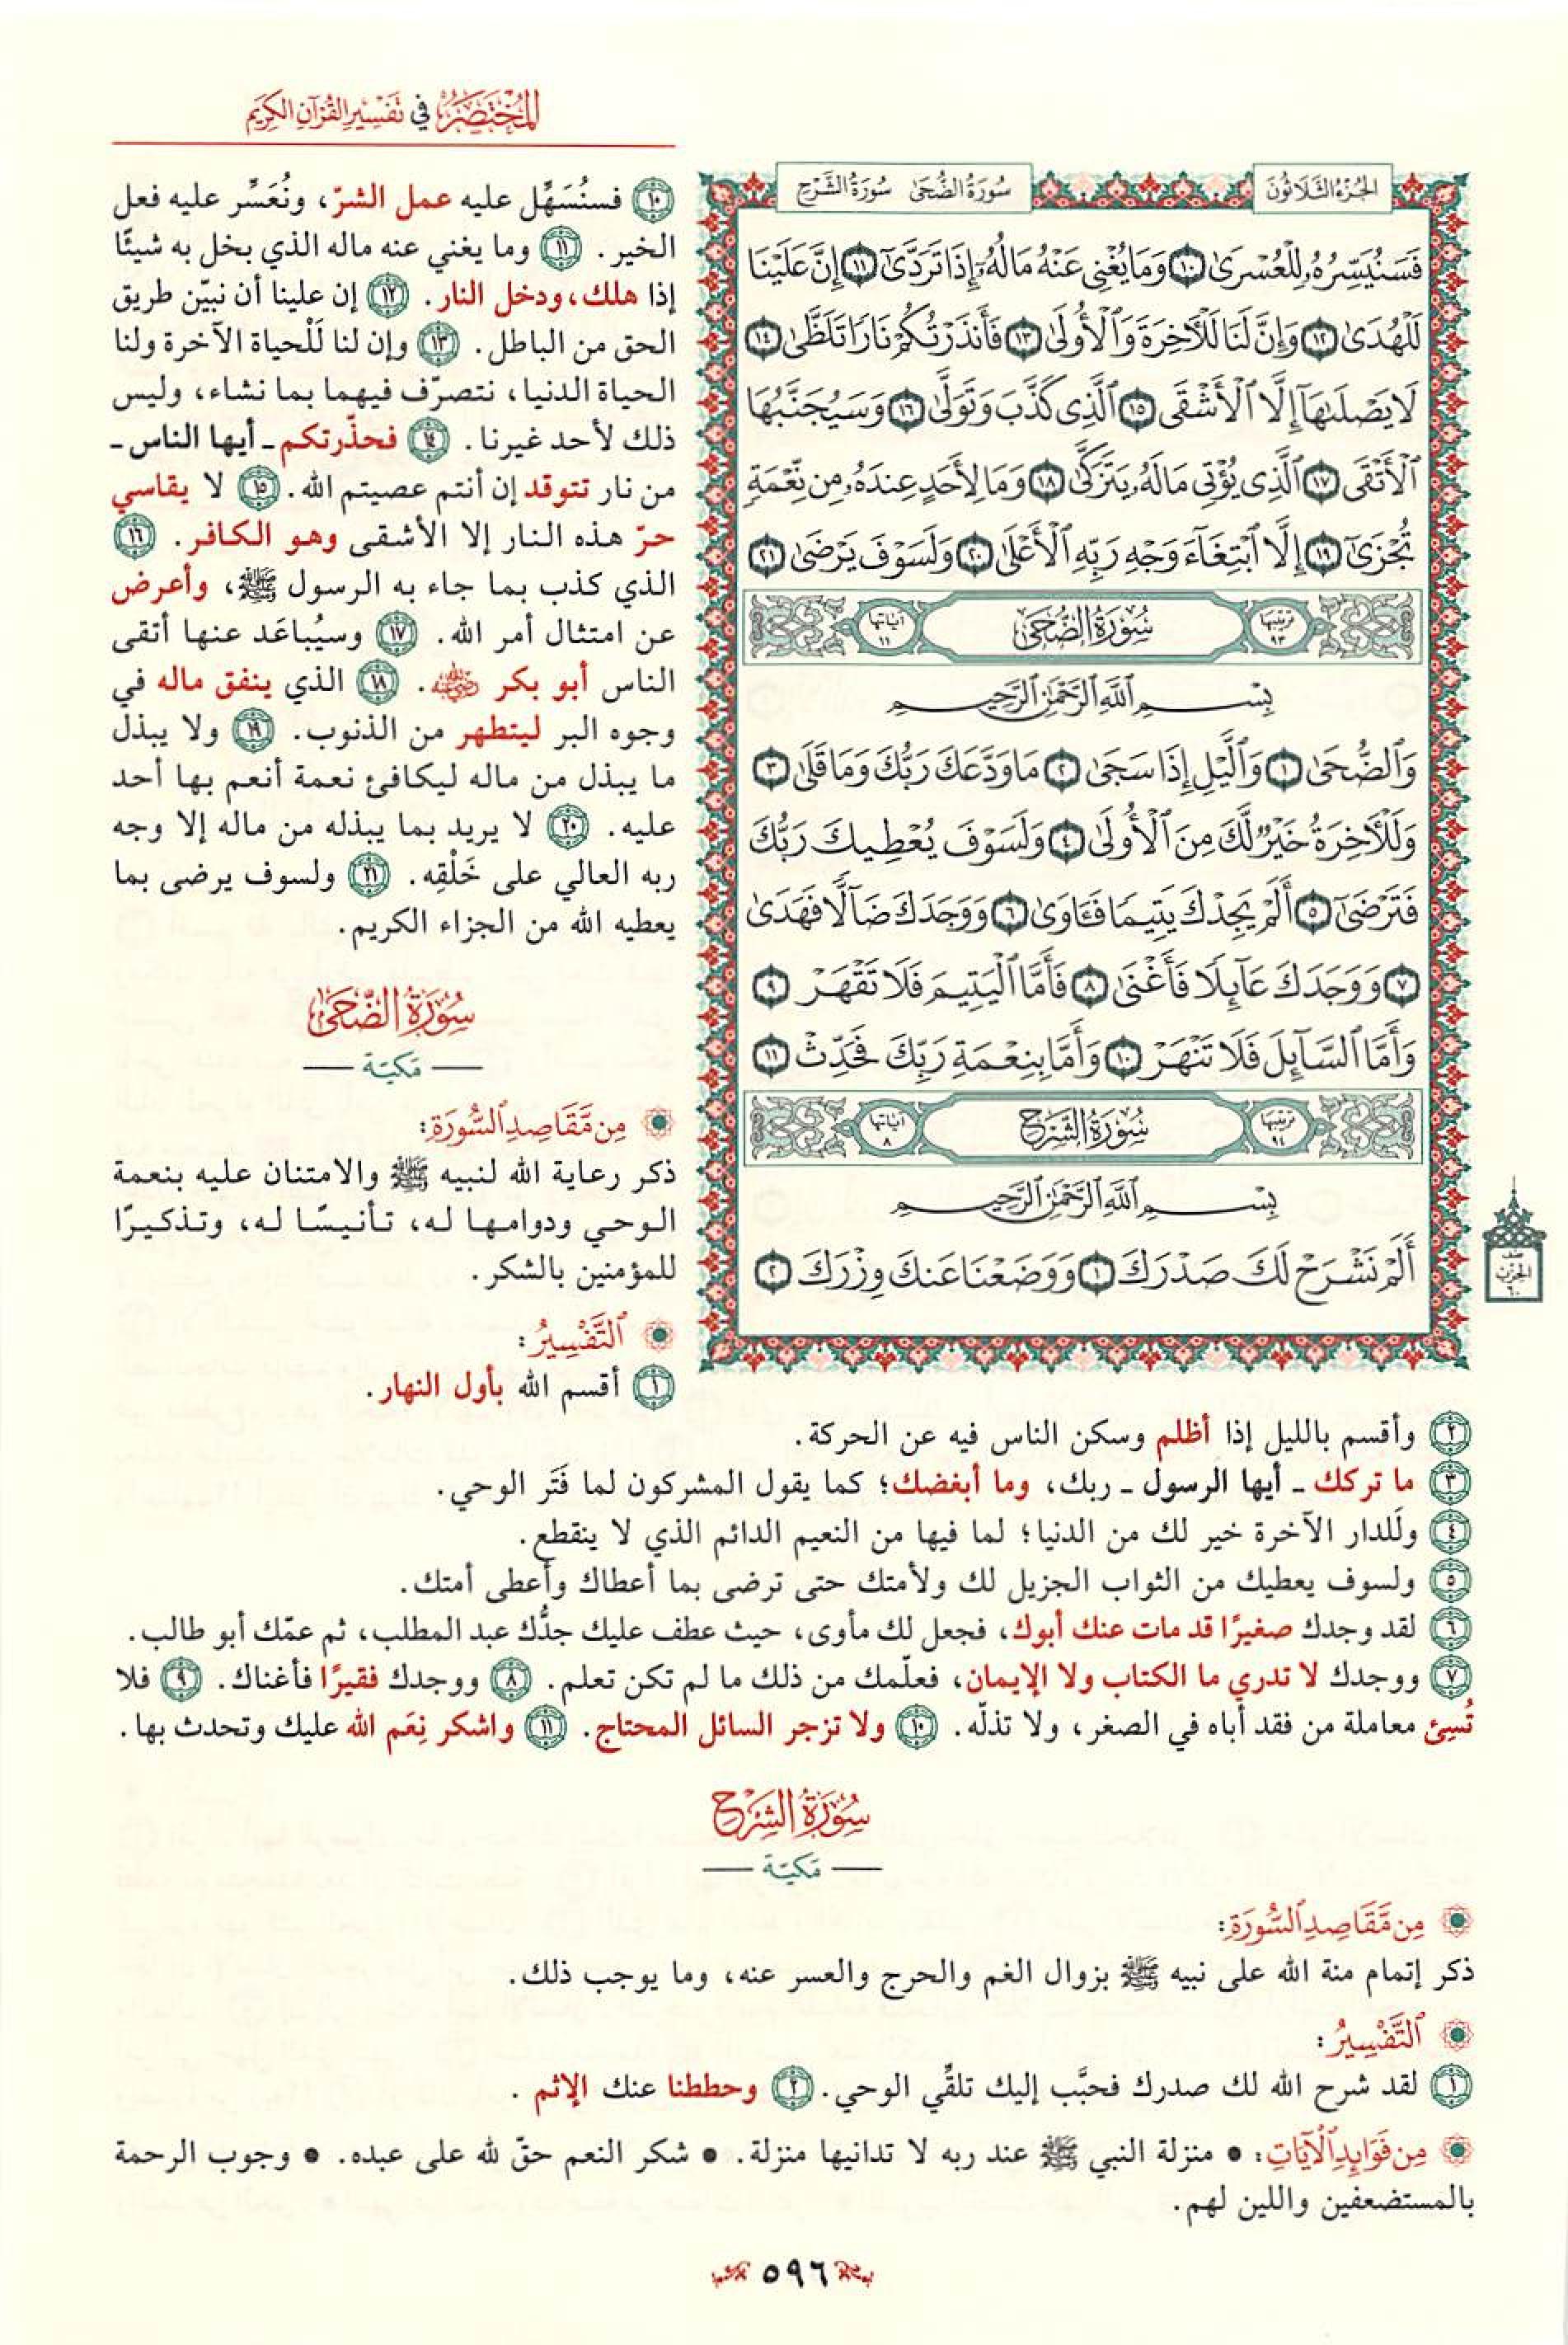 المختصر في تفسير القرآن الكريم
الجزء الثلاثون
سورة الضحى سورة الشرح
فَسَنُيَسِّرُهُۥ لِلْعُسْرَىٰ ١٠ وَمَا يُغْنِى عَنْهُ مَالُهُۥٓ إِذَا تَرَدَّىٰٓ ١١ إِنَّ عَلَيْنَا
لَلْهُدَىٰ ١٢ وَإِنَّ لَنَا لَلْـَٔاخِرَةَ وَٱلْأُولَىٰ ١٣ فَأَنذَرْتُكُمْ نَارًا تَلَظَّىٰ ١٤
لَا يَصْلَىٰهَآ إِلَّا ٱلْأَشْقَى ١٥ ٱلَّذِى كَذَّبَ وَتَوَلَّىٰ ١٦ وَسَيُجَنَّبُهَا
ٱلْأَتْقَى ١٧ ٱلَّذِى يُؤْتِى مَالَهُۥ يَتَزَكَّىٰ ١٨ وَمَا لِأَحَدٍ عِندَهُۥ مِن نِّعْمَةٍ
تُجْزَىٰٓ ١٩ إِلَّا ٱبْتِغَآءَ وَجْهِ رَبِّهِ ٱلْأَعْلَىٰ ٢٠ وَلَسَوْفَ يَرْضَىٰ ٢١
ترتيبها ٩٣ سُورَةُ الضُّحَىٰ آياتها ١١
بِسْمِ ٱللَّهِ ٱلرَّحْمَٰنِ ٱلرَّحِيمِ
وَٱلضُّحَىٰ ١ وَٱلَّيْلِ إِذَا سَجَىٰ ٢ مَا وَدَّعَكَ رَبُّكَ وَمَا قَلَىٰ ٣
وَلَلْـَٔاخِرَةُ خَيْرٌ لَّكَ مِنَ ٱلْأُولَىٰ ٤ وَلَسَوْفَ يُعْطِيكَ رَبُّكَ
فَتَرْضَىٰٓ ٥ أَلَمْ يَجِدْكَ يَتِيمًا فَـَٔاوَىٰ ٦ وَوَجَدَكَ ضَآلًّا فَهَدَىٰ
٧ وَوَجَدَكَ عَآئِلًا فَأَغْنَىٰ ٨ فَأَمَّا ٱلْيَتِيمَ فَلَا تَقْهَرْ ٩
وَأَمَّا ٱلسَّآئِلَ فَلَا تَنْهَرْ ١٠ وَأَمَّا بِنِعْمَةِ رَبِّكَ فَحَدِّثْ ١١
ترتيبها ٩٤ سُورَةُ الشَّرْحِ آياتها ٨
بِسْمِ ٱللَّهِ ٱلرَّحْمَٰنِ ٱلرَّحِيمِ
أَلَمْ نَشْرَحْ لَكَ صَدْرَكَ ١ وَوَضَعْنَا عَنكَ وِزْرَكَ ٢
نصف
الحزب
٦٠
١٠ فسنُسَهِّل عليه عمل الشرّ، ونُعَسِّر عليه فعل
الخير. ١١ وما يغني عنه ماله الذي بخل به شيئًا
إذا هلك، ودخل النار. ١٢ إن علينا أن نبيّن طريق
الحق من الباطل. ١٣ وإن لنا لَلْحياة الآخرة ولنا
الحياة الدنيا، نتصرّف فيهما بما نشاء، وليس
ذلك لأحد غيرنا. ١٤ فحذّرتكم ـ أيها الناس ـ
من نار تتوقد إن أنتم عصيتم الله. ١٥ لا يقاسي
حرّ هذه النار إلا الأشقى وهو الكافر. ١٦
الذي كذب بما جاء به الرسول ﷺ، وأعرض
عن امتثال أمر الله. ١٧ وسيُباعَد عنها أتقى
الناس أبو بكر رضي الله عنه. ١٨ الذي ينفق ماله في
وجوه البر ليتطهر من الذنوب. ١٩ ولا يبذل
ما يبذل من ماله ليكافئ نعمة أنعم بها أحد
عليه. ٢٠ لا يريد بما يبذله من ماله إلا وجه
ربه العالي على خَلْقِه. ٢١ ولسوف يرضى بما
يعطيه الله من الجزاء الكريم.
سُورَةُ الضُّحَىٰ
مَكيّة
مِن مَّقَاصِدِ السُّورَةِ:
ذكر رعاية الله لنبيه ﷺ والامتنان عليه بنعمة
الوحي ودوامها له، تأنيسًا له، وتذكيرًا
للمؤمنين بالشكر.
التَّفْسِيرُ:
١ أقسم الله بأول النهار.
٢ وأقسم بالليل إذا أظلم وسكن الناس فيه عن الحركة.
٣ ما تركك ـ أيها الرسول ـ ربك، وما أبغضك؛ كما يقول المشركون لما فَتَر الوحي.
٤ ولَلدار الآخرة خير لك من الدنيا؛ لما فيها من النعيم الدائم الذي لا ينقطع.
٥ ولسوف يعطيك من الثواب الجزيل لك ولأمتك حتى ترضى بما أعطاك وأعطى أمتك.
٦ لقد وجدك صغيرًا قد مات عنك أبوك، فجعل لك مأوى، حيث عطف عليك جدُّك عبد المطلب، ثم عمّك أبو طالب.
٧ ووجدك لا تدري ما الكتاب ولا الإيمان، فعلّمك من ذلك ما لم تكن تعلم. ٨ ووجدك فقيرًا فأغناك. ٩ فلا
تُسِئ معاملة من فقد أباه في الصغر، ولا تذلّه. ١٠ ولا تزجر السائل المحتاج. ١١ واشكر نِعَم الله عليك وتحدث بها.
سُورَةُ الشَّرْحِ
مَكيّة
مِن مَّقَاصِدِ السُّورَةِ:
ذكر إتمام منة الله على نبيه ﷺ بزوال الغم والحرج والعسر عنه، وما يوجب ذلك.
التَّفْسِيرُ:
١ لقد شرح الله لك صدرك فحبَّب إليك تلقِّي الوحي. ٢ وحططنا عنك الإثم .
مِن فَوَائِدِ الْآيَاتِ: • منزلة النبي ﷺ عند ربه لا تدانيها منزلة. • شكر النعم حقّ لله على عبده. • وجوب الرحمة
بالمستضعفين واللين لهم.
٥٩٦